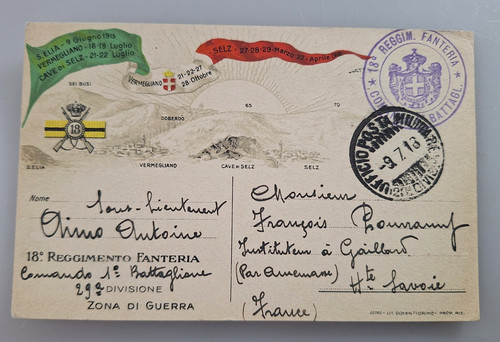 S. ELIA - 9 Giugno 1915
VERMEGLIANO - 18-19 Luglio
CAVE DI SELZ - 21-22 Luglio
VERMEGLIANO
21-22-27
28 Ottobre
SELZ - 27-28-29 Marzo 22 Aprile
18° REGGIM. FANTERIA
BATTAGL.
UFFICIO POSTA MILITARE
-9.7.16
SEI BUSI
DOBERDÒ
65
70
18
S. ELIA
VERMEGLIANO
CAVE DI SELZ
SELZ
Nome
Sous-Lieutenant
Aimo Antoine
18° REGGIMENTO FANTERIA
Comando 1° Battaglione
29ª DIVISIONE
ZONA DI GUERRA
Monsieur
François
Instituteur à Gaillard
(Par Annemasse)
Hte Savoie
(France)